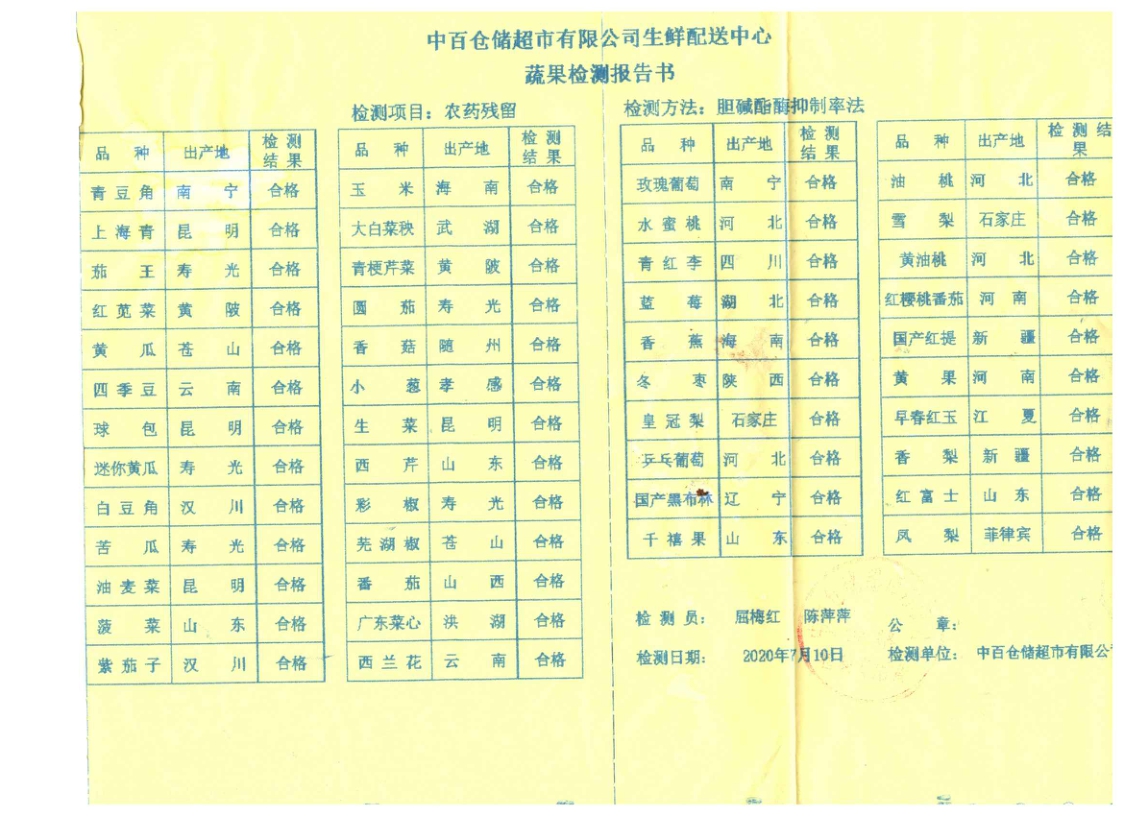 中百仓储超市有限公司生鲜配送中心
蔬果检测报告书
检测项目：农药残留
检测方法：胆碱酯酶抑制率法
品 种 出产地 检测结果
青豆角 南宁 合格
上海青 昆明 合格
茄王 寿光 合格
红苋菜 黄陂 合格
黄瓜 苍山 合格
四季豆 云南 合格
球包 昆明 合格
迷你黄瓜 寿光 合格
白豆角 汉川 合格
苦瓜 寿光 合格
油麦菜 昆明 合格
菠菜 山东 合格
紫茄子 汉川 合格
品 种 出产地 检测结果
玉米 海南 合格
大白菜秧 武湖 合格
青梗芹菜 黄陂 合格
圆茄 寿光 合格
香菇 随州 合格
小葱 孝感 合格
生菜 昆明 合格
西芹 山东 合格
彩椒 寿光 合格
芜湖椒 苍山 合格
番茄 山西 合格
广东菜心 洪湖 合格
西兰花 云南 合格
品 种 出产地 检测结果
玫瑰葡萄 南宁 合格
水蜜桃 河北 合格
青红李 四川 合格
蓝莓 湖北 合格
香蕉 海南 合格
冬枣 陕西 合格
皇冠梨 石家庄 合格
乒乓葡萄 河北 合格
国产黑布林 辽宁 合格
千禧果 山东 合格
品 种 出产地 检测结果
油桃 河北 合格
雪梨 石家庄 合格
黄油桃 河北 合格
红樱桃番茄 河南 合格
国产红提 新疆 合格
黄果 河南 合格
早春红玉 江夏 合格
香梨 新疆 合格
红富士 山东 合格
凤梨 菲律宾 合格
检测员： 屈梅红 陈萍萍
公 章：
检测日期： 2020年7月10日
检测单位： 中百仓储超市有限公